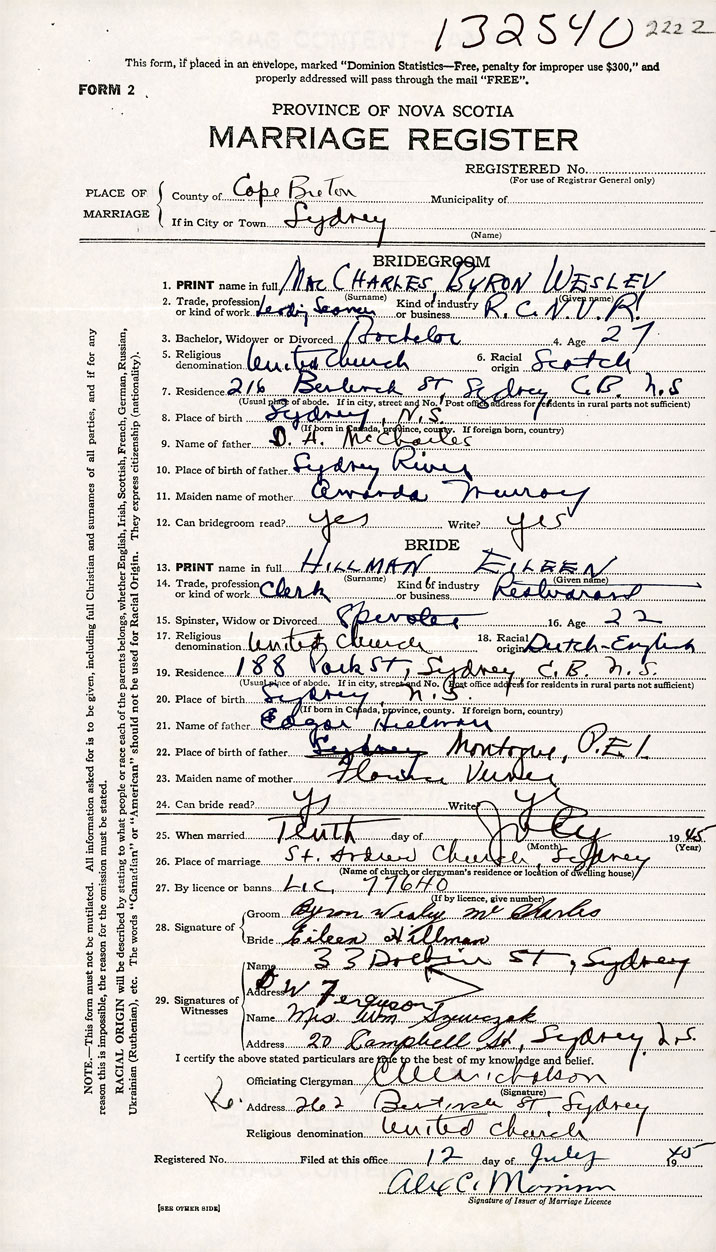 132540 2222
This form, if placed in an envelope, marked "Dominion Statistics—Free, penalty for improper use $300," and
properly addressed will pass through the mail "FREE".
FORM 2
PROVINCE OF NOVA SCOTIA
MARRIAGE REGISTER
REGISTERED No.
(For use of Registrar General only)
PLACE OF MARRIAGE
County of Cape Breton Municipality of
If in City or Town Sydney
(Name)
BRIDEGROOM
1. PRINT name in full MacCHARLES BYRON WESLEY
(Surname) (Given name)
2. Trade, profession or kind of work Leading Seaman Kind of industry or business R.C.N.V.R.
3. Bachelor, Widower or Divorced Bachelor 4. Age 27
5. Religious denomination United Church 6. Racial origin Scotch
7. Residence 216 St, Sydney C.B. N.S
(Usual place of abode. If in city, street and No. Post office address for residents in rural parts not sufficient)
8. Place of birth Sydney, N.S.
(If born in Canada, province, county. If foreign born, country)
9. Name of father D. A. McCharles
10. Place of birth of father Sydney River
11. Maiden name of mother Amanda Murray
12. Can bridegroom read? yes Write? yes
BRIDE
13. PRINT name in full HILLMAN EILEEN
(Surname) (Given name)
14. Trade, profession or kind of work Clerk Kind of industry or business Restaurant
15. Spinster, Widow or Divorced Spinster 16. Age 22
17. Religious denomination United Church 18. Racial origin Dutch-English
19. Residence 188 Park St, Sydney C.B. N.S.
(Usual place of abode. If in city, street and No. Post office address for residents in rural parts not sufficient)
20. Place of birth Sydney, N.S.
(If born in Canada, province, county. If foreign born, country)
21. Name of father Edgar Hillman
22. Place of birth of father Sydney Montague, P.E.I.
23. Maiden name of mother Florence
24. Can bride read? Yes Write? Yes
25. When married Tenth day of July 1945
(Month) (Year)
26. Place of marriage St. Andrew Church, Sydney
(Name of church or clergyman's residence or location of dwelling house)
27. By licence or banns Lic. 77640
(If by licence, give number)
28. Signature of
Groom Byron Wesley McCharles
Bride Eileen Hillman
29. Signatures of Witnesses
Name 33 St, Sydney
Address D W Ferguson
Name Mrs. Wm
Address 20 Campbell St, Sydney N.S.
I certify the above stated particulars are true to the best of my knowledge and belief.
Officiating Clergyman Nicholson
(Signature)
Address 262 St, Sydney
Religious denomination United Church
Registered No. Filed at this office 12 day of July 1945
Alex C. Morrison
Signature of Issuer of Marriage Licence
[SEE OTHER SIDE]
NOTE.—This form must not be mutilated. All information asked for is to be given, including full Christian and surnames of all parties, and if for any
reason this is impossible, the reason for the omission must be stated.
RACIAL ORIGIN will be described by stating to what people or race each of the parents belongs, whether English, Irish, Scottish, French, German, Russian,
Ukrainian (Ruthenian), etc. The words "Canadian" or "American" should not be used for Racial Origin. They express citizenship (nationality).